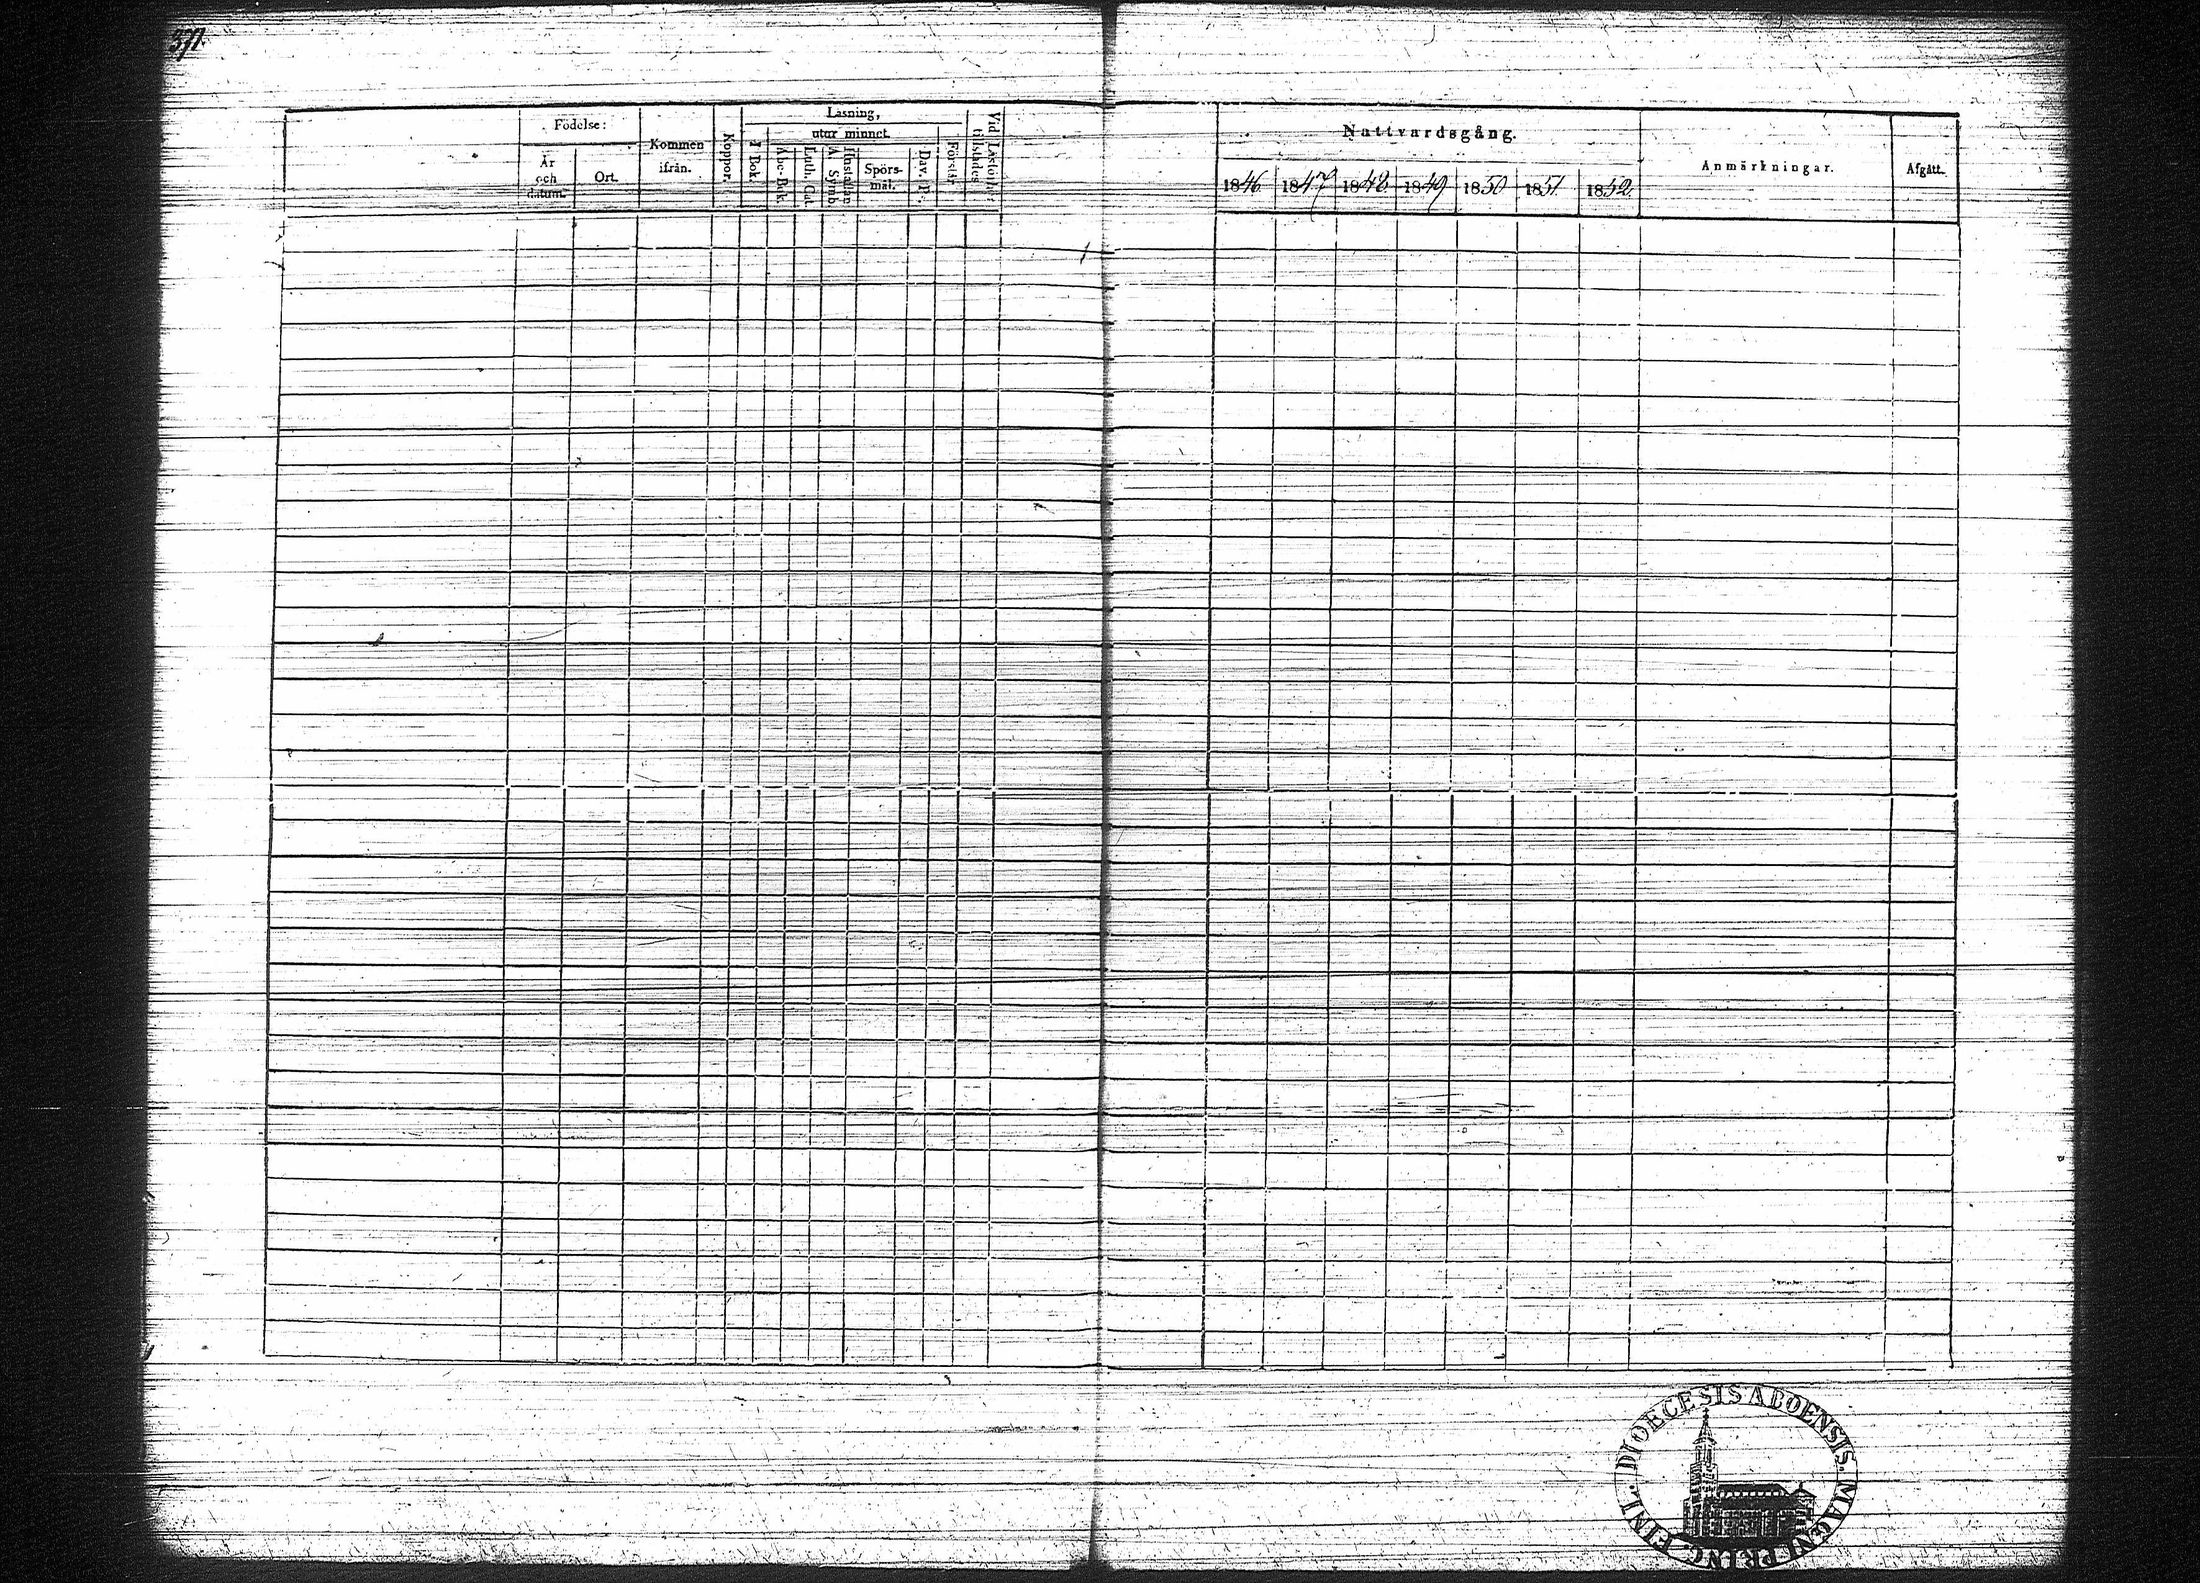 377.
Födelse:
År
och
datum.
Ort.
Kommen
ifrån.
Koppor.
Läsning,
utur minnet.
I Bok.
Abc-Bok.
Luth. Cat.
Hustaflan
A. Symb.
Spörs-
mål.
Dav. P.
Förstår
Vid Läsförhör
tillstädes
Nattvardsgång.
1846 1847 1848 1849 1850 1851 1852
Anmärkningar.
Afgått.
DIOECESIS ABOENSIS. MAGNI PRINC. FINL.